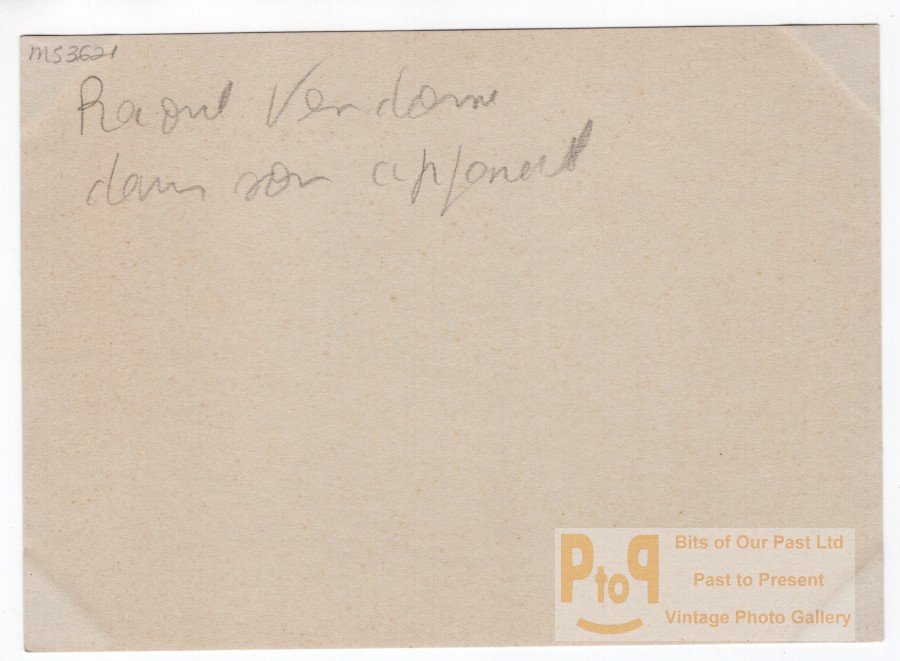 MS3621
Raoul Vendome
dans son appareil
PtoP
Bits of Our Past Ltd
Past to Present
Vintage Photo Gallery